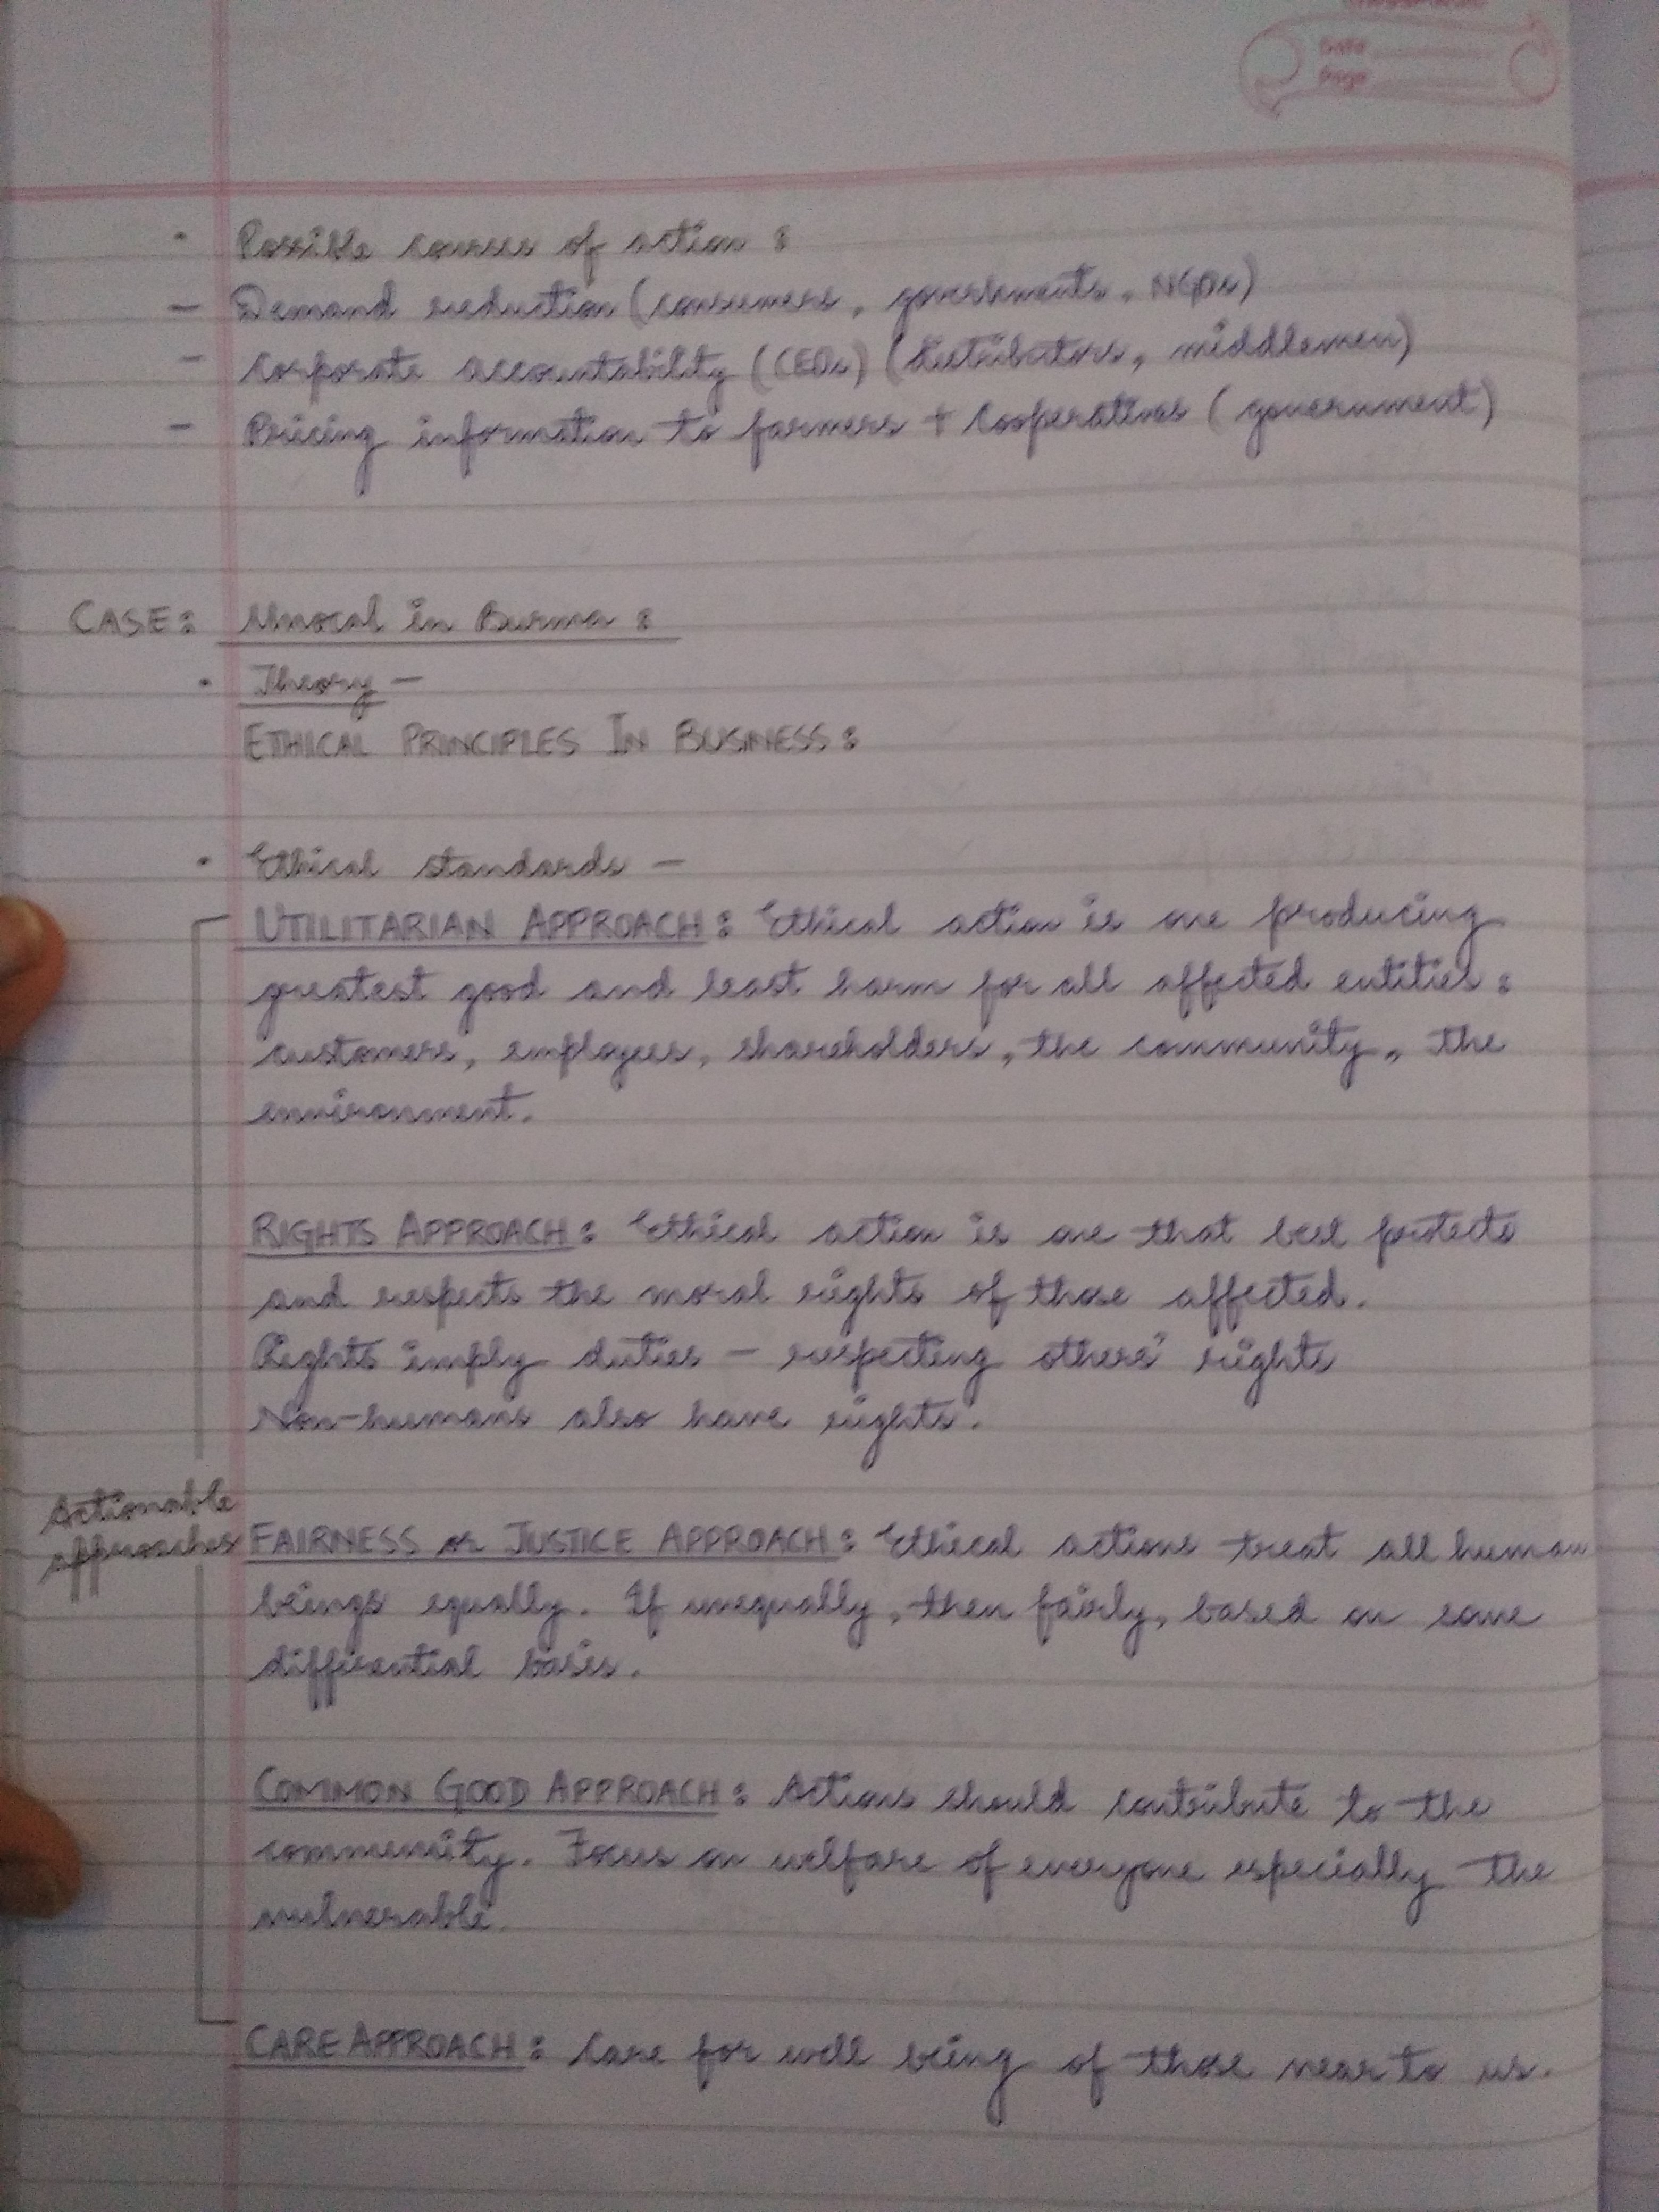 Date
Page
• Possible courses of action :
— Demand reduction (consumers, governments, NGOs)
— Corporate accountability (CEOs) (distributors, middlemen)
— Pricing information to farmers + Cooperatives (government)
CASE : Unocal in Burma :
• Theory —
ETHICAL PRINCIPLES IN BUSINESS :
• Ethical standards —
UTILITARIAN APPROACH : Ethical action is one producing
greatest good and least harm for all affected entities :
customers, employees, shareholders, the community, the
environment.
RIGHTS APPROACH : Ethical action is one that best protects
and respects the moral rights of those affected.
Rights imply duties — respecting others' rights
Non-humans also have rights.
Actionable
approaches
FAIRNESS or JUSTICE APPROACH : Ethical actions treat all human
beings equally. If unequally, then fairly, based on some
differential basis.
COMMON GOOD APPROACH : Actions should contribute to the
community. Focus on welfare of everyone especially the
vulnerable.
CARE APPROACH : Care for well being of those near to us.